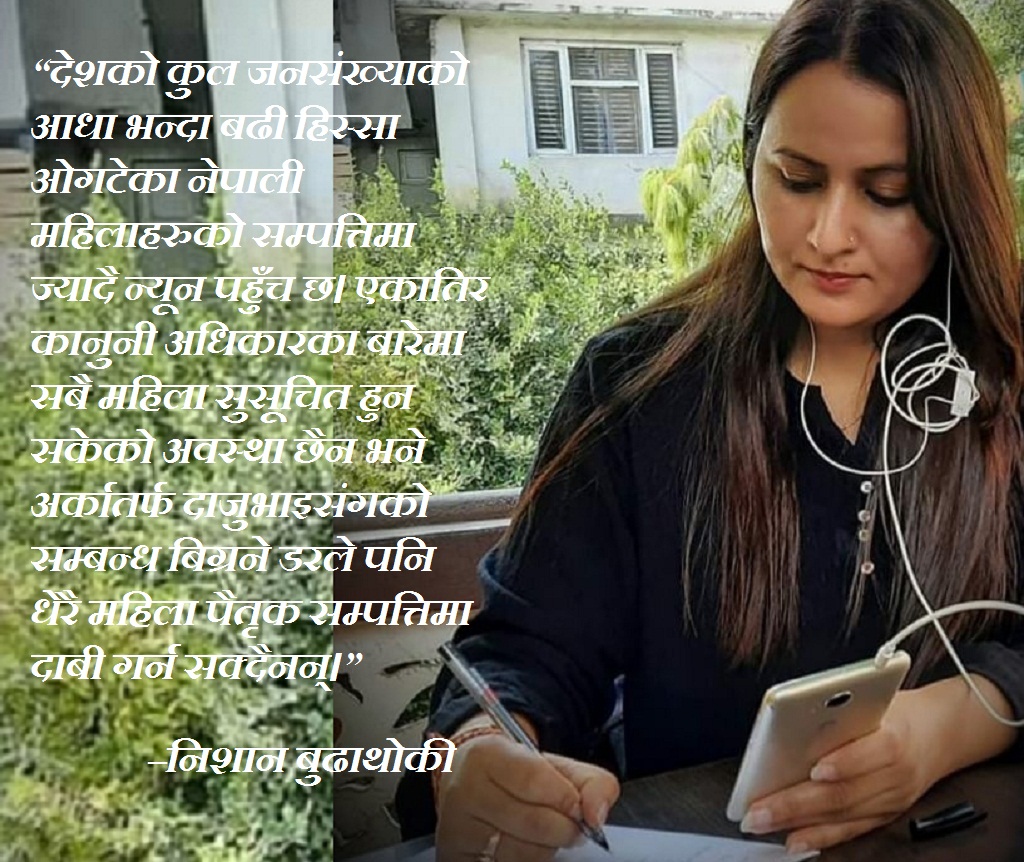 “देशको कुल जनसंख्याको
आधा भन्दा बढी हिस्सा
ओगटेका नेपाली
महिलाहरुको सम्पत्तिमा
ज्यादै न्यून पहुँच छ। एकातिर
कानुनी अधिकारका बारेमा
सबै महिला सुसूचित हुन
सकेको अवस्था छैन भने
अर्कातर्फ दाजुभाइसंगको
सम्बन्ध बिग्रने डरले पनि
धेरै महिला पैतृक सम्पत्तिमा
दाबी गर्न सक्दैनन्।”
–निशान बुढाथोकी